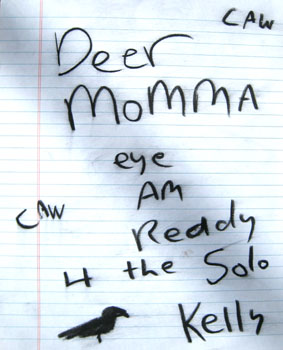 CAW
Deer
MOMMA
eye
AM
CAW
Reddy
4 the Solo
Kelly